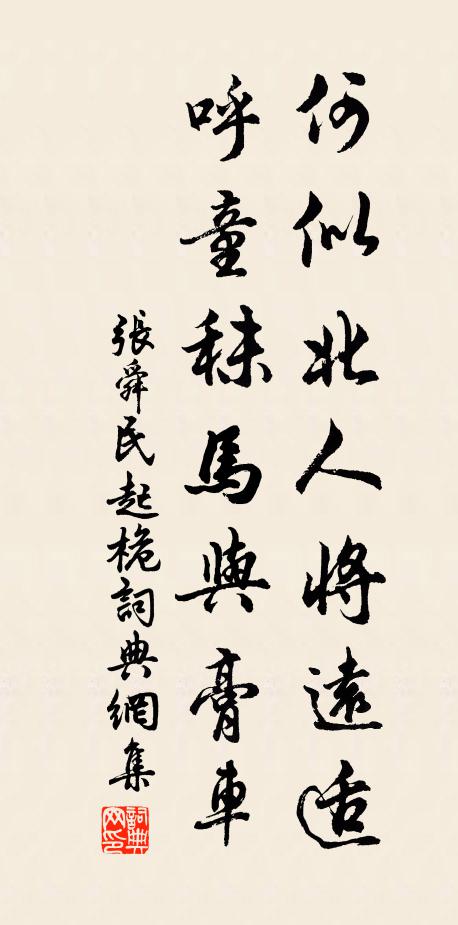 何似北人將遠适
呼童秣馬與膏車
張舜民起桅詞典網集
詞典網印